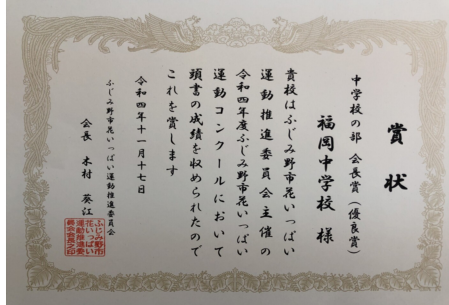 賞状
中学校の部 会長賞(優良賞)
福岡中学校 様
貴校はふじみ野市花いっぱい
運動推進委員会主催の
令和四年度ふじみ野市花いっぱい
運動コンクールにおいて
頭書の成績を収められたので
これを賞します
令和四年十一月十七日
ふじみ野市花いっぱい運動推進委員会
会長 木村 葵江
ふじみ野市
花いっぱい
運動推進委
員会会長之印